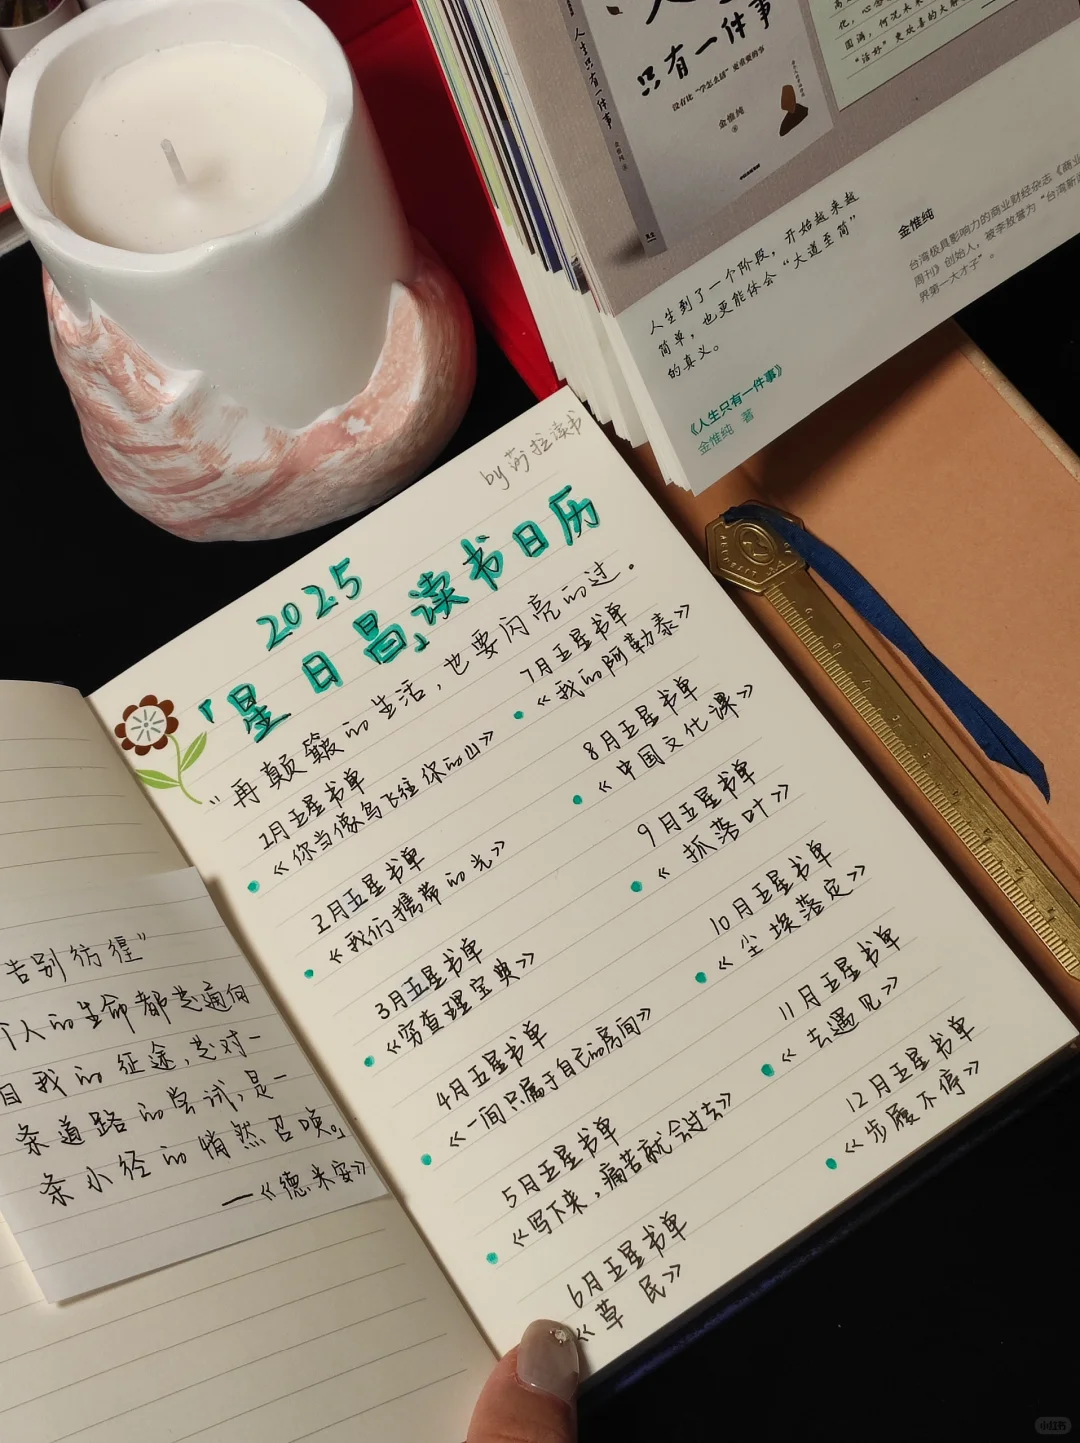 只有一件事
没有比“学怎么活”更重要的事
金惟纯
著
人生只有一件事
人生到了一个阶段，开始越来越
简单，也更能体会“大道至简”
的真义。
《人生只有一件事》
金惟纯 著
金惟纯
台湾极具影响力的商业财经杂志《商业
周刊》创始人，被李敖誉为“台湾新
界第一大才子”。
化，心态
圆满，何况未来
“活好”更欢喜的大解
by 莎拉读书
2025
「星日昌」读书日历
“再颠簸的生活，也要闪亮的过。
1月五星书单
《你当像鸟飞往你的山》
2月五星书单
《我们携带的光》
3月五星书单
《穷查理宝典》
4月五星书单
《一间只属于自己的房间》
5月五星书单
《写下来，痛苦就会过去》
6月五星书单
《草民》
7月五星书单
《我的阿勒泰》
8月五星书单
《中国文化课》
9月五星书单
《抓落叶》
10月五星书单
《尘埃落定》
11月五星书单
《去遇见》
12月五星书单
《步履不停》
告别彷徨”
个人的生命都是通向
自我的征途，是对一
条道路的尝试，是一
条小径的悄然召唤。」
—《德米安》
小红书